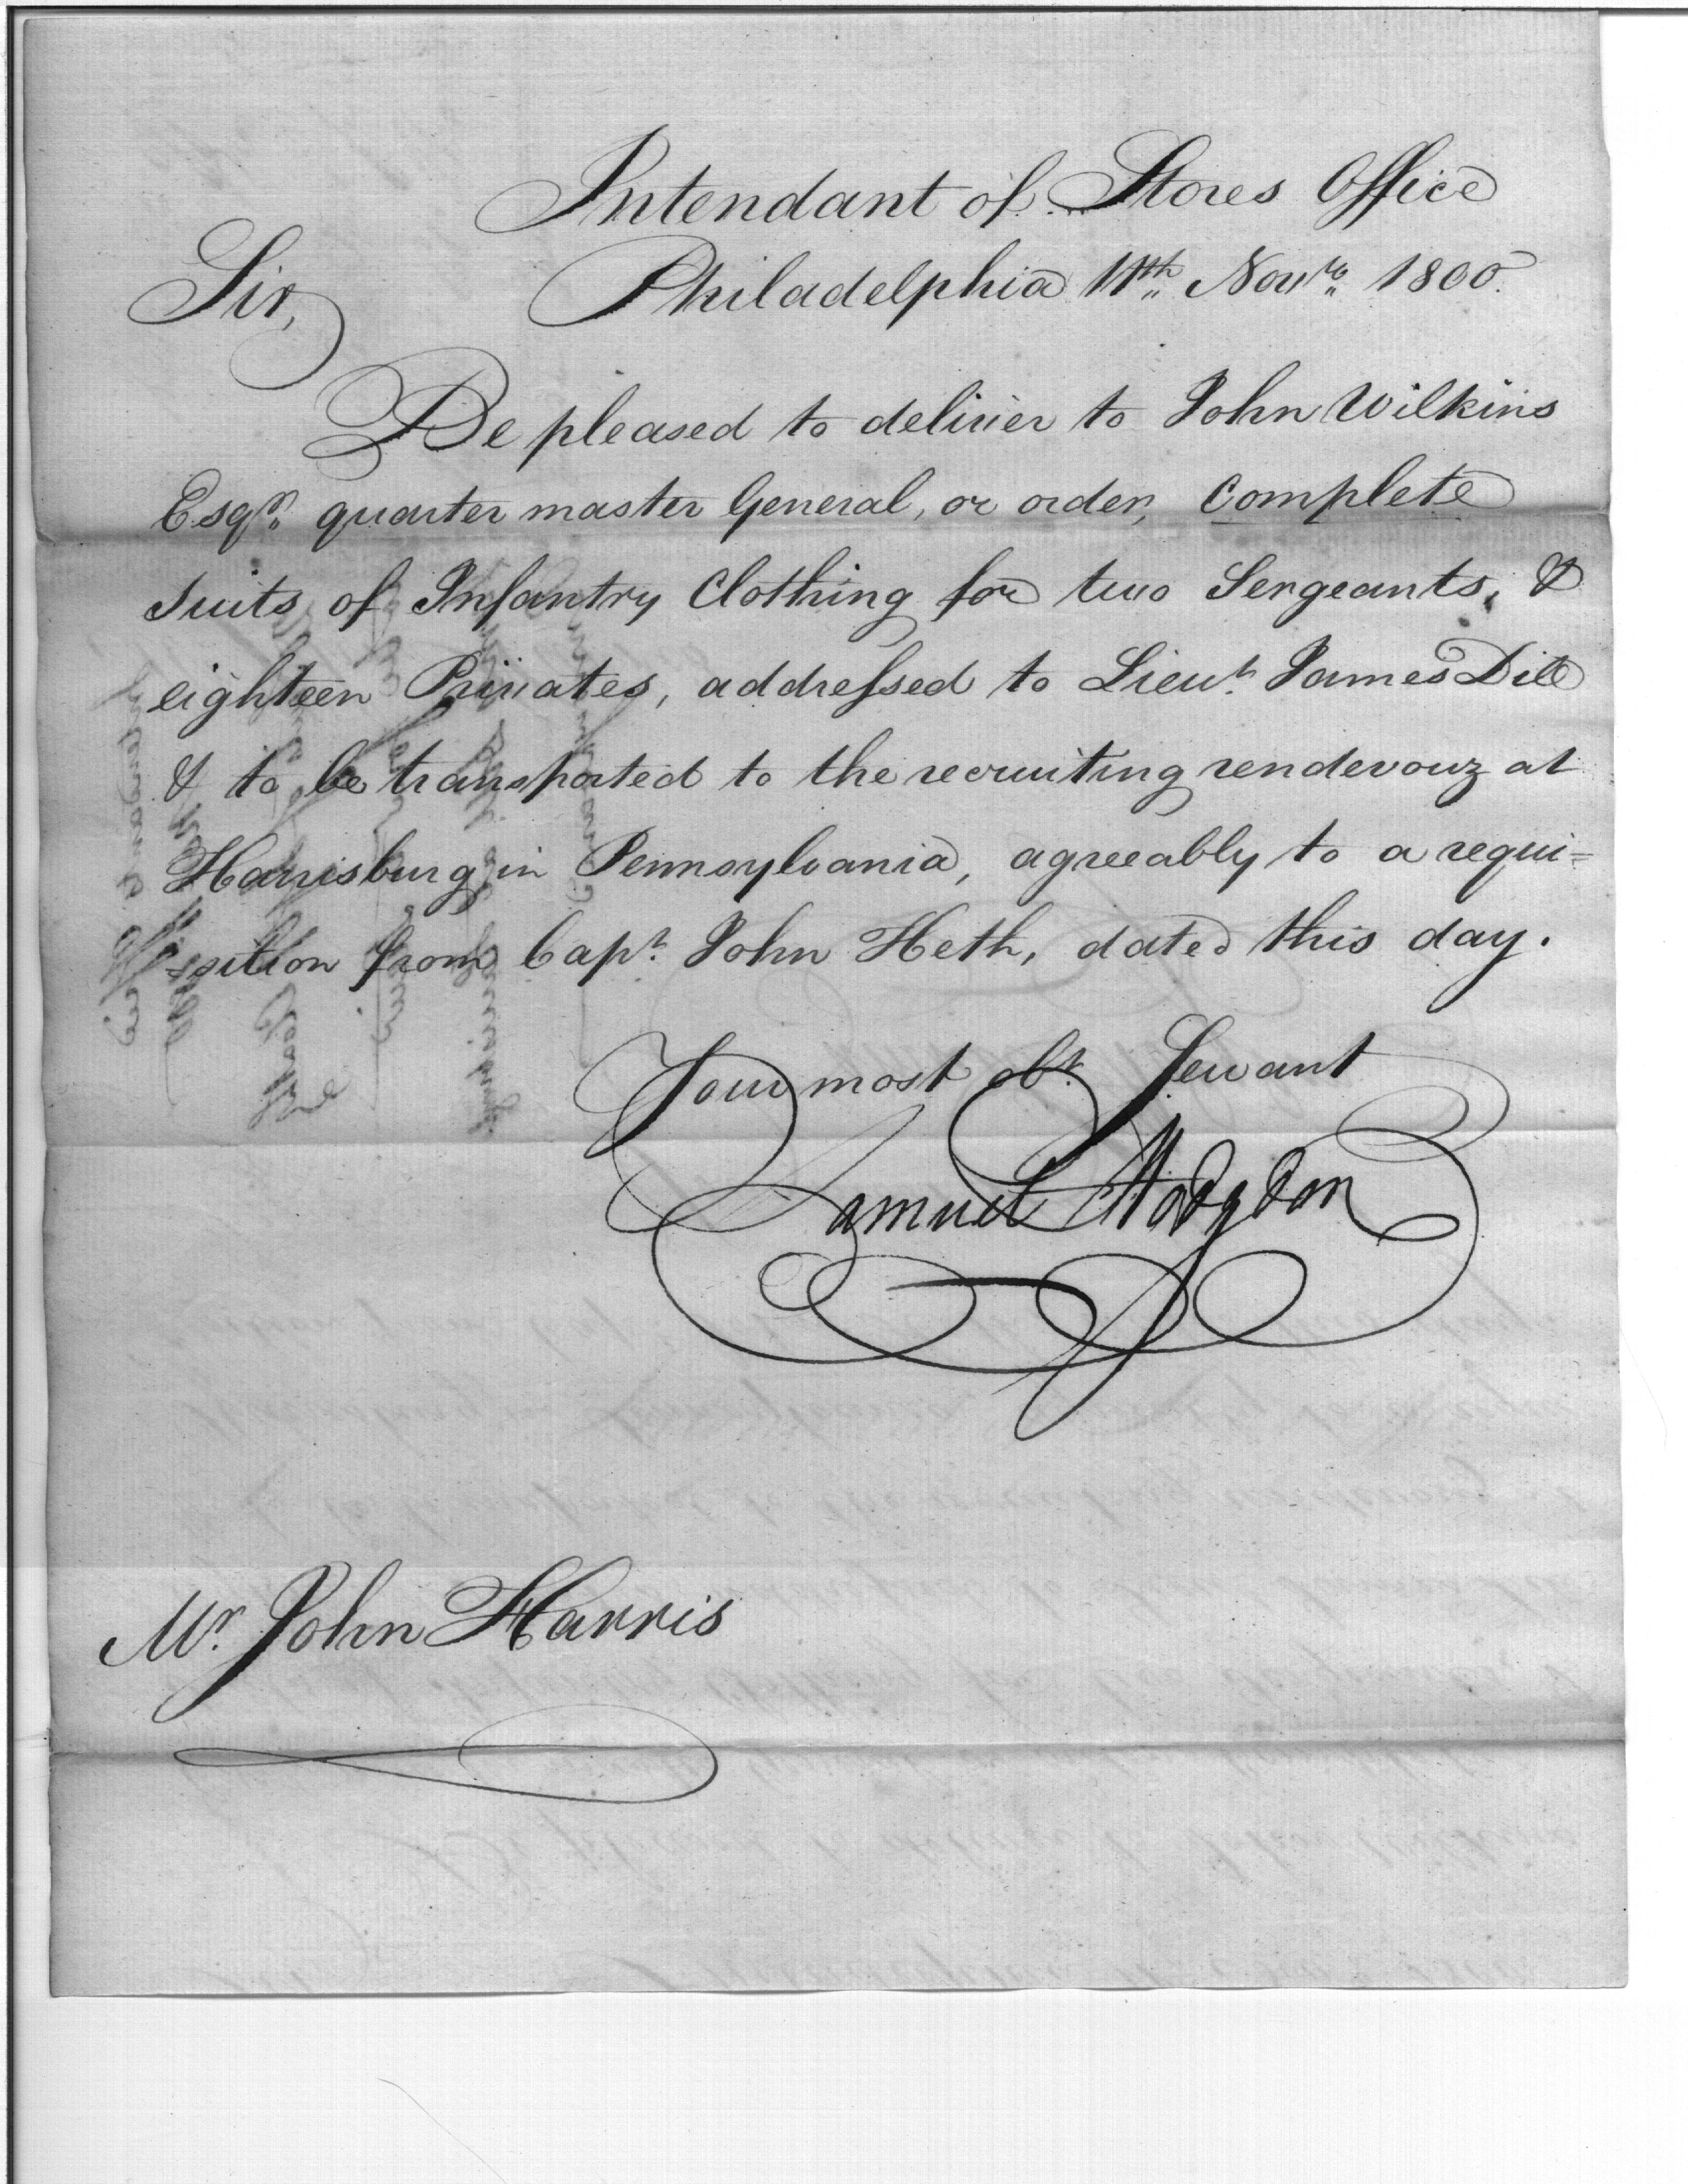 Intendant of Stores Office
Philadelphia 11th Novr 1800.
Sir,
Be pleased to deliver to John Wilkins
Esqr. quarter master General, or order, Complete
suits of Infantry Clothing for two Sergeants, &
eighteen Privates, addressed to Lieut. James Dill
& to be transported to the recruiting rendevouz at
Harrisburg in Pennsylvania, agreeably to a requi=
=sition from Capt. John Heth, dated this day.
Your most obt. Servant
Samuel Hodgdon
Mr. John Harris